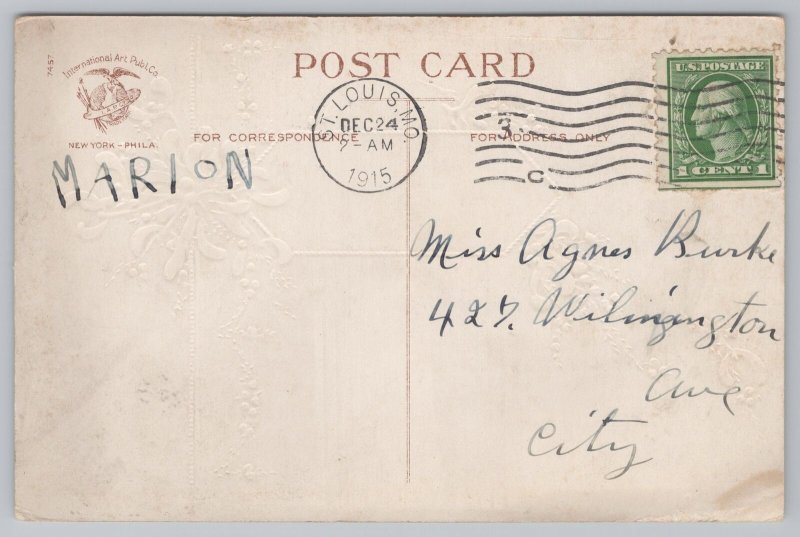 7457
International Art Publ. Co.
NEW YORK - PHILA.
POST CARD
FOR CORRESPONDENCE
FOR ADDRESS ONLY
ST. LOUIS, MO.
DEC 24
AM
1915
C
U.S. POSTAGE
1 CENT 1
MARION
Miss Agnes Burke
427. Wilmington
Ave
City